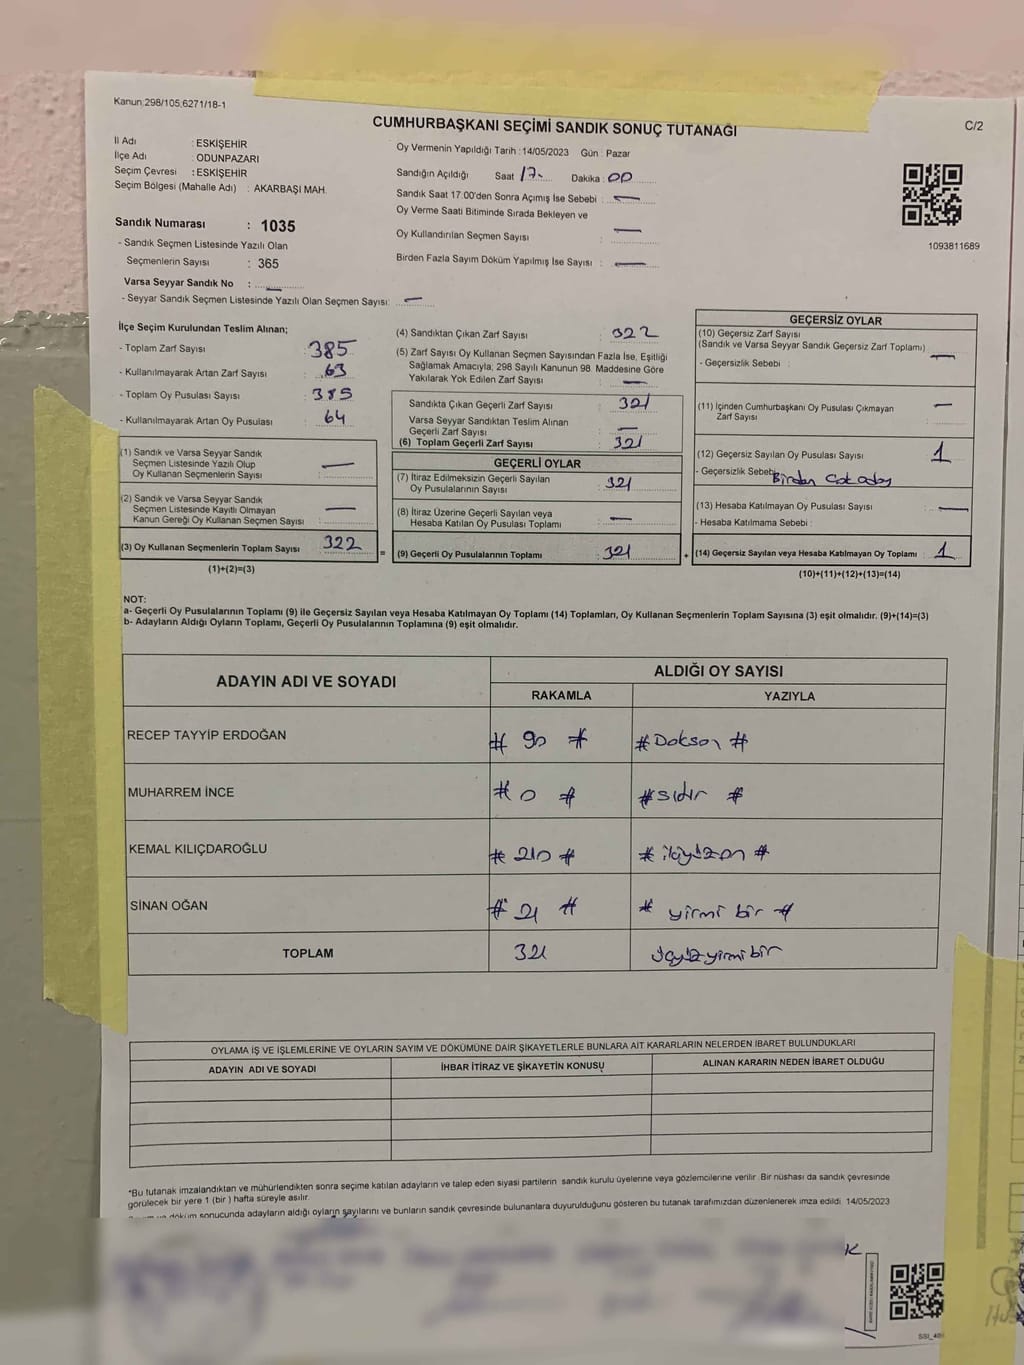 Kanun;298/105;6271/18-1
C/2
CUMHURBAŞKANI SEÇİMİ SANDIK SONUÇ TUTANAĞI
İl Adı : ESKİŞEHİR
İlçe Adı : ODUNPAZARI
Seçim Çevresi : ESKİŞEHİR
Seçim Bölgesi (Mahalle Adı) : AKARBAŞI MAH.
Sandık Numarası : 1035
- Sandık Seçmen Listesinde Yazılı Olan
Seçmenlerin Sayısı : 365
Varsa Seyyar Sandık No : —
- Seyyar Sandık Seçmen Listesinde Yazılı Olan Seçmen Sayısı: —
Oy Vermenin Yapıldığı Tarih :14/05/2023 Gün : Pazar
Sandığın Açıldığı Saat 17- Dakika : 00
Sandık Saat 17.00'den Sonra Açımış İse Sebebi : —
Oy Verme Saati Bitiminde Sırada Bekleyen ve
Oy Kullandırılan Seçmen Sayısı : —
Birden Fazla Sayım Döküm Yapılmış İse Sayısı : —
1093811689
İlçe Seçim Kurulundan Teslim Alınan;
- Toplam Zarf Sayısı : 385
- Kullanılmayarak Artan Zarf Sayısı : 63
- Toplam Oy Pusulası Sayısı : 385
- Kullanılmayarak Artan Oy Pusulası : 64
(1) Sandık ve Varsa Seyyar Sandık
Seçmen Listesinde Yazılı Olup
Oy Kullanan Seçmenlerin Sayısı : —
(2) Sandık ve Varsa Seyyar Sandık
Seçmen Listesinde Kayıtlı Olmayan
Kanun Gereği Oy Kullanan Seçmen Sayısı : —
(3) Oy Kullanan Seçmenlerin Toplam Sayısı : 322
(1)+(2)=(3)
(4) Sandıktan Çıkan Zarf Sayısı : 322
(5) Zarf Sayısı Oy Kullanan Seçmen Sayısından Fazla İse, Eşitliği
Sağlamak Amacıyla; 298 Sayılı Kanunun 98. Maddesine Göre
Yakılarak Yok Edilen Zarf Sayısı : —
Sandıkta Çıkan Geçerli Zarf Sayısı : 321
Varsa Seyyar Sandıktan Teslim Alınan
Geçerli Zarf Sayısı : —
(6) Toplam Geçerli Zarf Sayısı : 321
GEÇERLİ OYLAR
(7) İtiraz Edilmeksizin Geçerli Sayılan
Oy Pusulalarının Sayısı : 321
(8) İtiraz Üzerine Geçerli Sayılan veya
Hesaba Katılan Oy Pusulası Toplamı : —
= (9) Geçerli Oy Pusulalarının Toplamı : 321
GEÇERSİZ OYLAR
(10) Geçersiz Zarf Sayısı
(Sandık ve Varsa Seyyar Sandık Geçersiz Zarf Toplamı) : —
- Geçersizlik Sebebi :
(11) İçinden Cumhurbaşkanı Oy Pusulası Çıkmayan
Zarf Sayısı : —
(12) Geçersiz Sayılan Oy Pusulası Sayısı : 1
- Geçersizlik Sebebi : Birden Çok aday
(13) Hesaba Katılmayan Oy Pusulası Sayısı : —
- Hesaba Katılmama Sebebi :
+ (14) Geçersiz Sayılan veya Hesaba Katılmayan Oy Toplamı : 1
(10)+(11)+(12)+(13)=(14)
NOT:
a- Geçerli Oy Pusulalarının Toplamı (9) ile Geçersiz Sayılan veya Hesaba Katılmayan Oy Toplamı (14) Toplamları, Oy Kullanan Seçmenlerin Toplam Sayısına (3) eşit olmalıdır. (9)+(14)=(3)
b- Adayların Aldığı Oyların Toplamı, Geçerli Oy Pusulalarının Toplamına (9) eşit olmalıdır.
ADAYIN ADI VE SOYADI ALDIĞI OY SAYISI
RAKAMLA YAZIYLA
RECEP TAYYİP ERDOĞAN # 90 # # Doksan #
MUHARREM İNCE # 0 # # sıfır #
KEMAL KILIÇDAROĞLU # 210 # # ikiyüzon #
SİNAN OĞAN # 21 # # yirmi bir #
TOPLAM 321 üçyüzyirmibir
OYLAMA İŞ VE İŞLEMLERİNE VE OYLARIN SAYIM VE DÖKÜMÜNE DAİR ŞİKAYETLERLE BUNLARA AİT KARARLARIN NELERDEN İBARET BULUNDUKLARI
ADAYIN ADI VE SOYADI İHBAR İTİRAZ VE ŞİKAYETİN KONUSU ALINAN KARARIN NEDEN İBARET OLDUĞU
*Bu tutanak imzalandıktan ve mühürlendikten sonra seçime katılan adayların ve talep eden siyasi partilerin sandık kurulu üyelerine veya gözlemcilerine verilir. Bir nüshası da sandık çevresinde
görülecek bir yere 1 (bir ) hafta süreyle asılır.
döküm sonucunda adayların aldığı oyların sayılarını ve bunların sandık çevresinde bulunanlara duyurulduğunu gösteren bu tutanak tarafımızdan düzenlenerek imza edildi. 14/05/2023